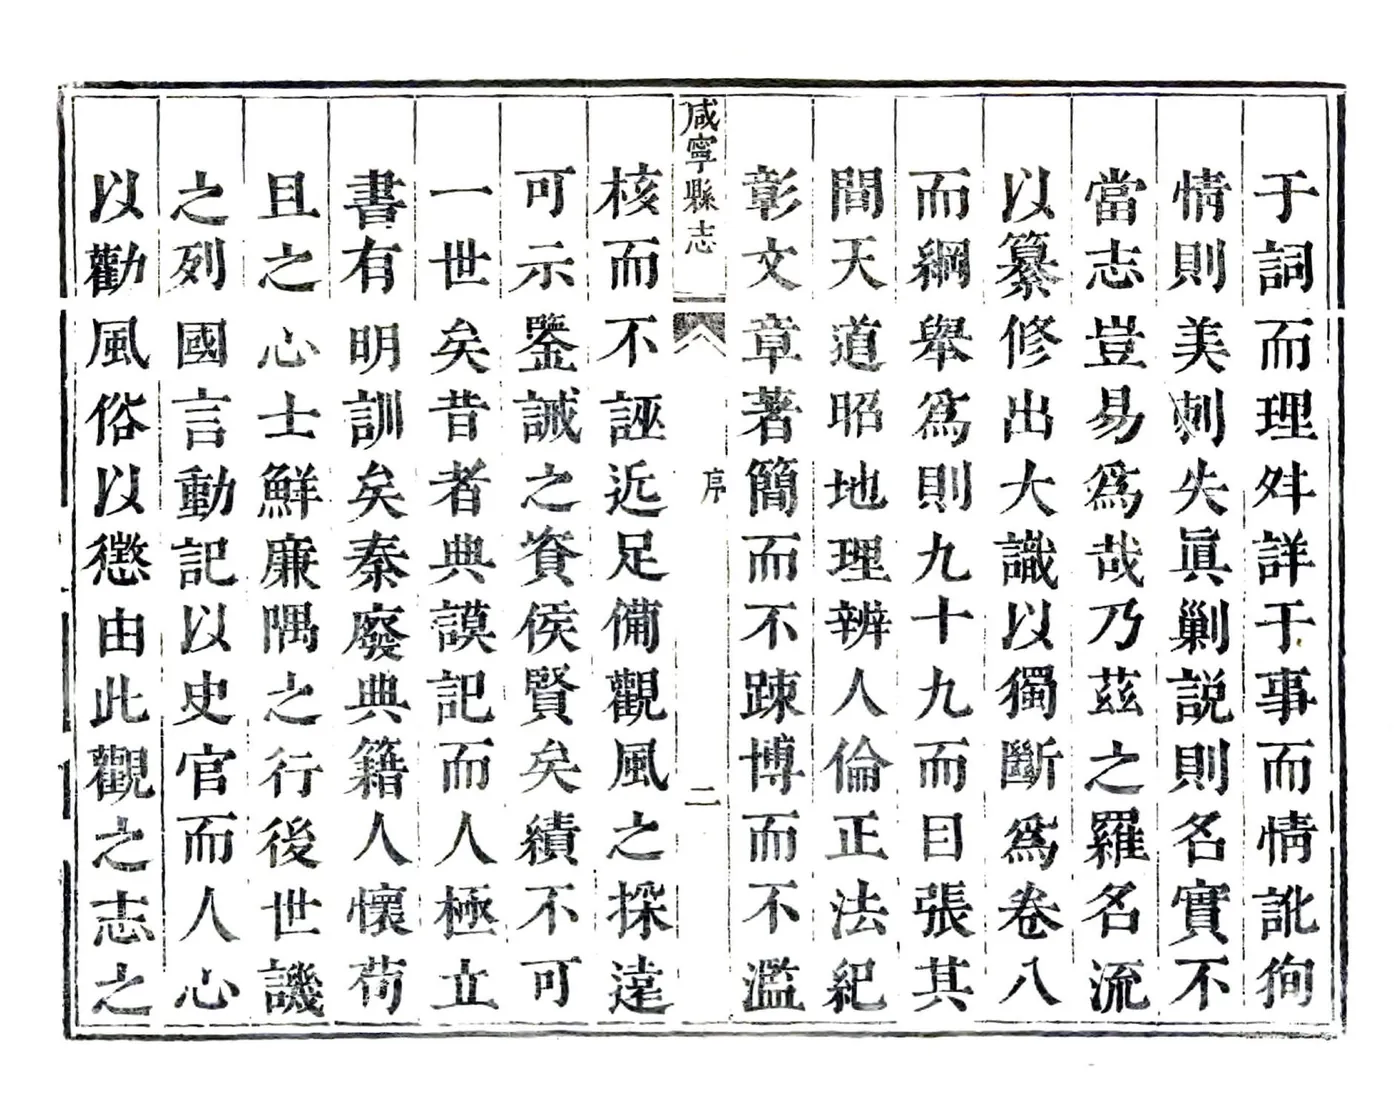 于詞而理舛詳于事而情訛狥
情則美刺失眞剿説則名實不
當志豈易爲哉乃茲之羅名流
以纂修出大識以獨斷爲卷八
而綱舉爲則九十九而目張其
間天道昭地理辨人倫正法紀
彰文章著簡而不踈博而不濫
咸寧縣志
序
二
核而不誣近足備觀風之採遠
可示鑒誡之資侯賢矣績不可
一世矣昔者典謨記而人極立
書有明訓矣秦廢典籍人懷茍
且之心士鮮廉隅之行後世譏
之列國言動記以史官而人心
以勸風俗以懲由此觀之志之